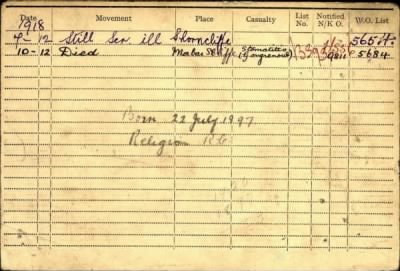 Date Movement Place Casualty List No. Notified N/K O. W.O. List
1918
4-12 Still Ser. ill Shorncliffe 5654.
10-12 Died Do Stomatitis (gangrenous) 9811 5684
Born 22 July 1897
Religion R.C.